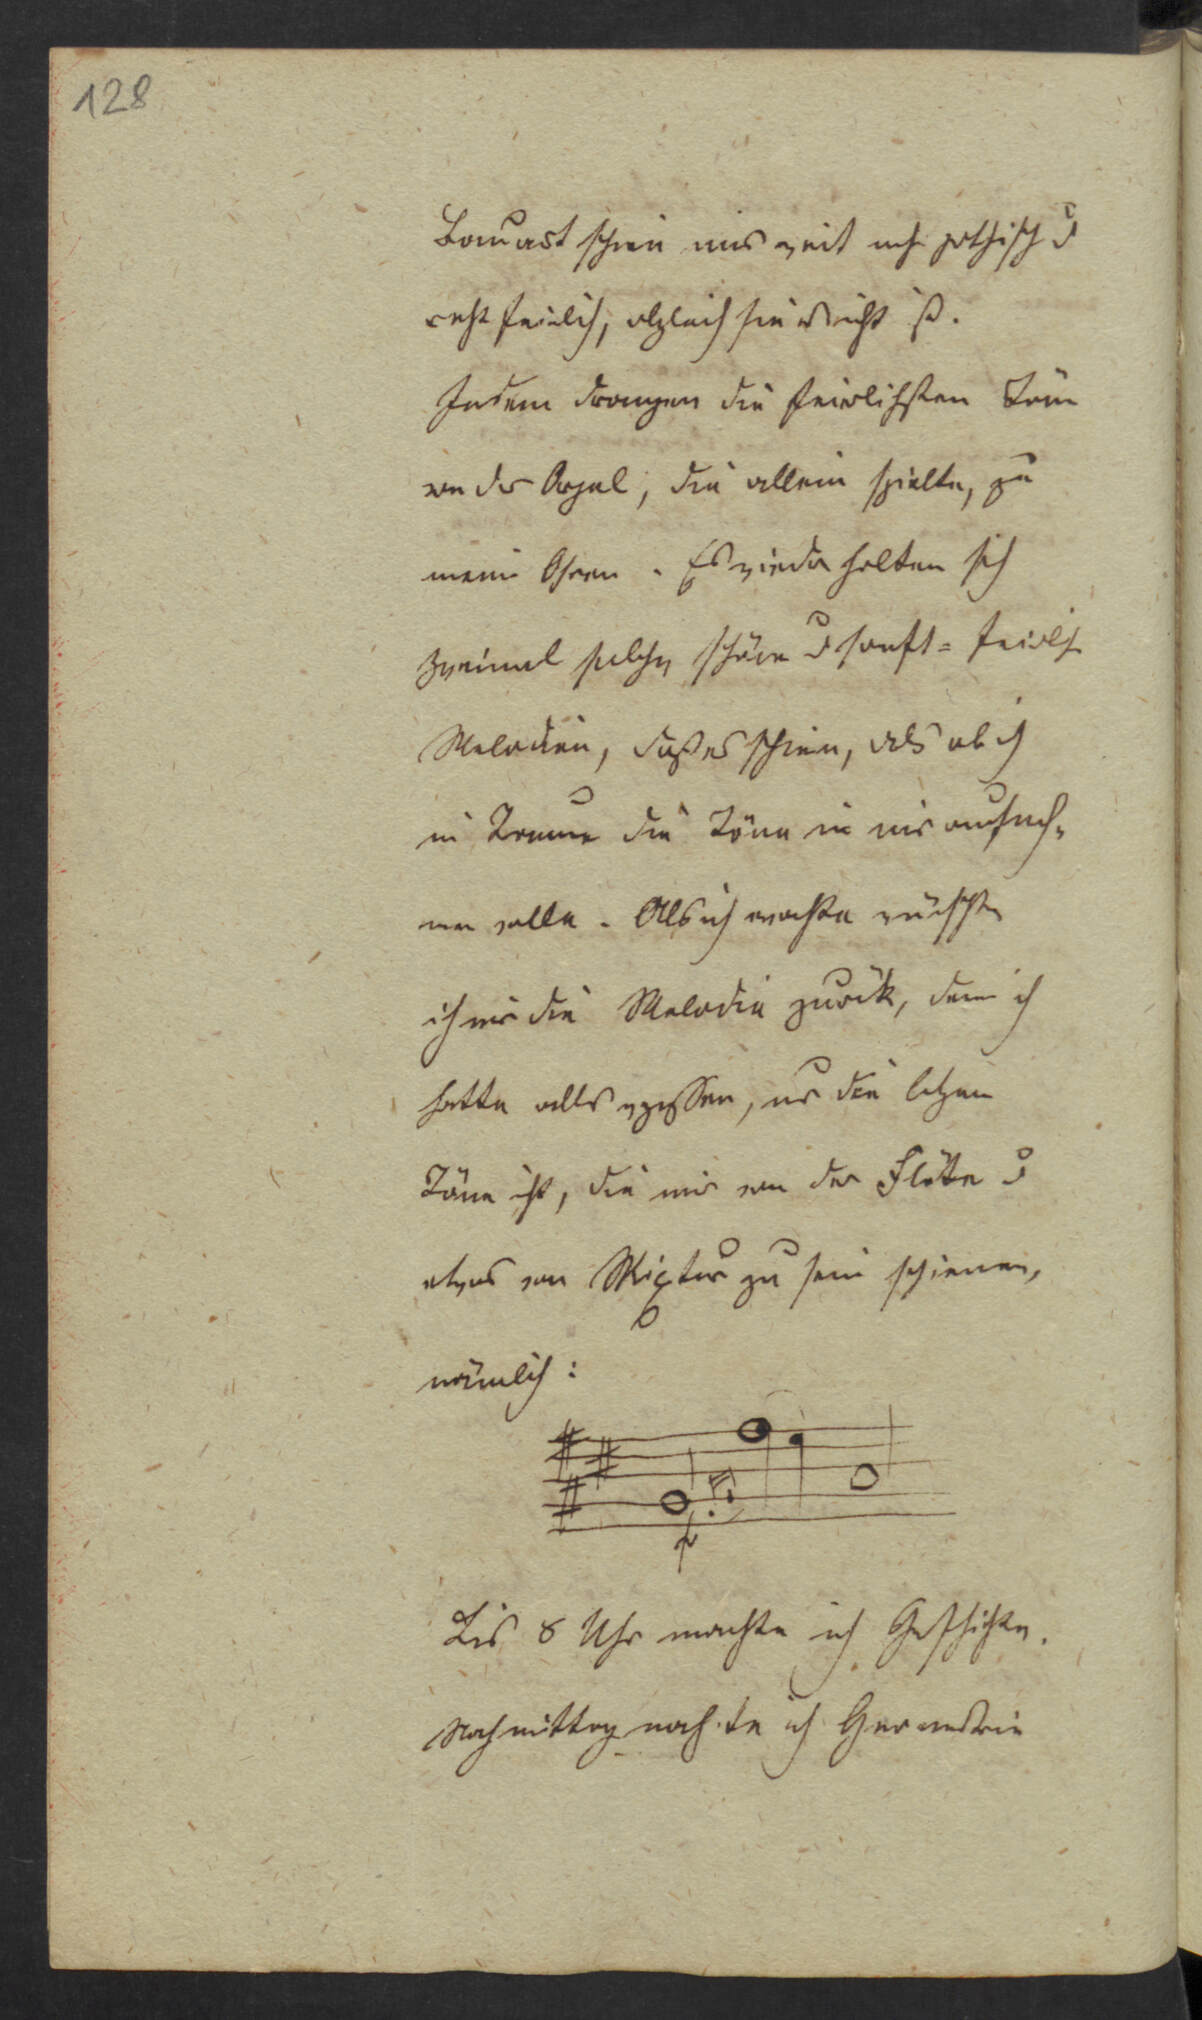 128
Bauart schien mir weit mehr gothisch u
recht feierlich, obgleich sie es nicht ist.
Indem drangen die feierlichsten Töne
von der Orgel, die allein spielte, zu
meinen Ohren. Es wiederholten sich
zweimal solche schöne u sanft=feierliche
Melodien, daß es schien, als ob ich
im Traume die Töne in mir aufneh-
men solle. Als ich erwachte wünschte
ich mir die Melodie zurück, denn ich
hatte alles vergessen, nur die letzten
Töne nicht, die mir von der Flöte u
etwas von Mixtur zu sein schienen,
nämlich:
Bis 8 Uhr machte ich Geschichte.
Nachmittag machte ich Geometrie